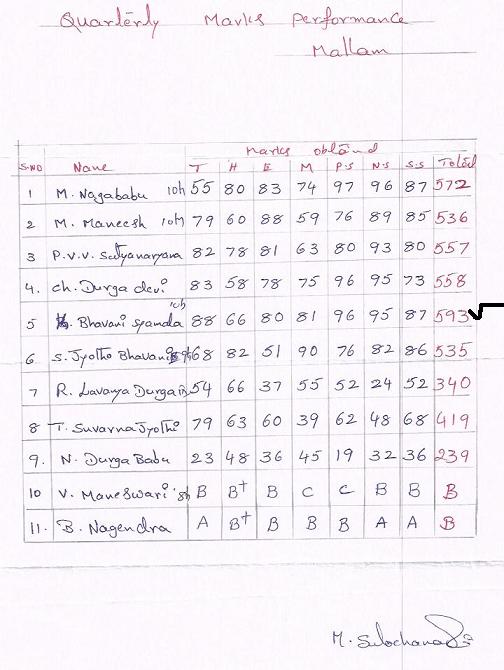 Quarterly Marks Performance
Mallam
Marks obtaind
S.NO Name T H E M P.S N.S S.S Total
1 M. Nagababu 10th 55 80 83 74 97 96 87 572
2 M. Maneesh 10th 79 60 88 59 76 89 85 536
3 P.V.V. Satyanaryana 82 78 81 63 80 93 80 557
4. Ch. Durga devi 83 58 78 75 96 95 73 558
5 Bhavani Syamala 10th 88 66 80 81 96 95 87 593
6 S. Jyothi Bhavani 9th 68 82 51 90 76 82 86 535
7 R. Lavanya Durga 54 66 37 55 52 24 52 340
8 T. Suvarna Jyothi 79 63 60 39 62 48 68 419
9. N. Durga Babu 23 48 36 45 19 32 36 239
10 V. Maneswari B B+ B C C B B B
11. B. Nagendra A B+ B B B A A B
M. Sulochana